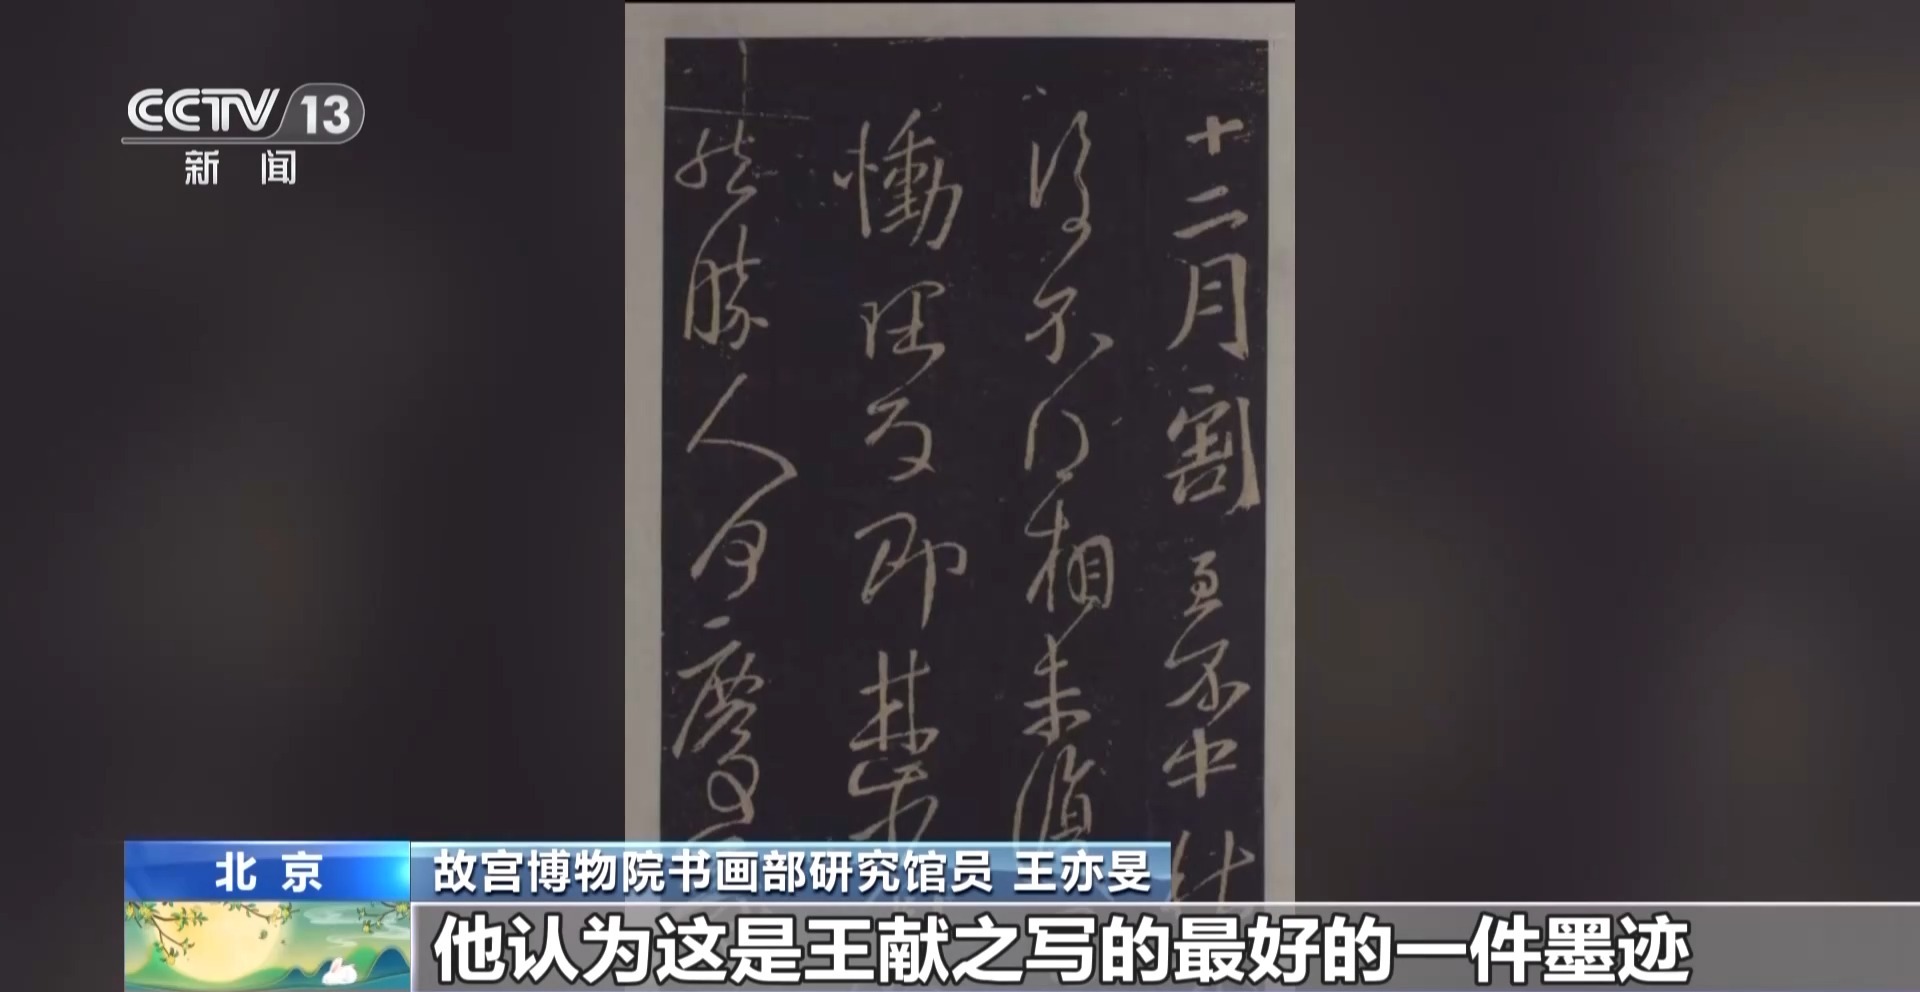 CCTV 13
新闻
十二月割至不中
復不得相未復
慟理為即甚省
然勝人何慶等
北京
故宫博物院书画部研究馆员 王亦旻
他认为这是王献之写的最好的一件墨迹